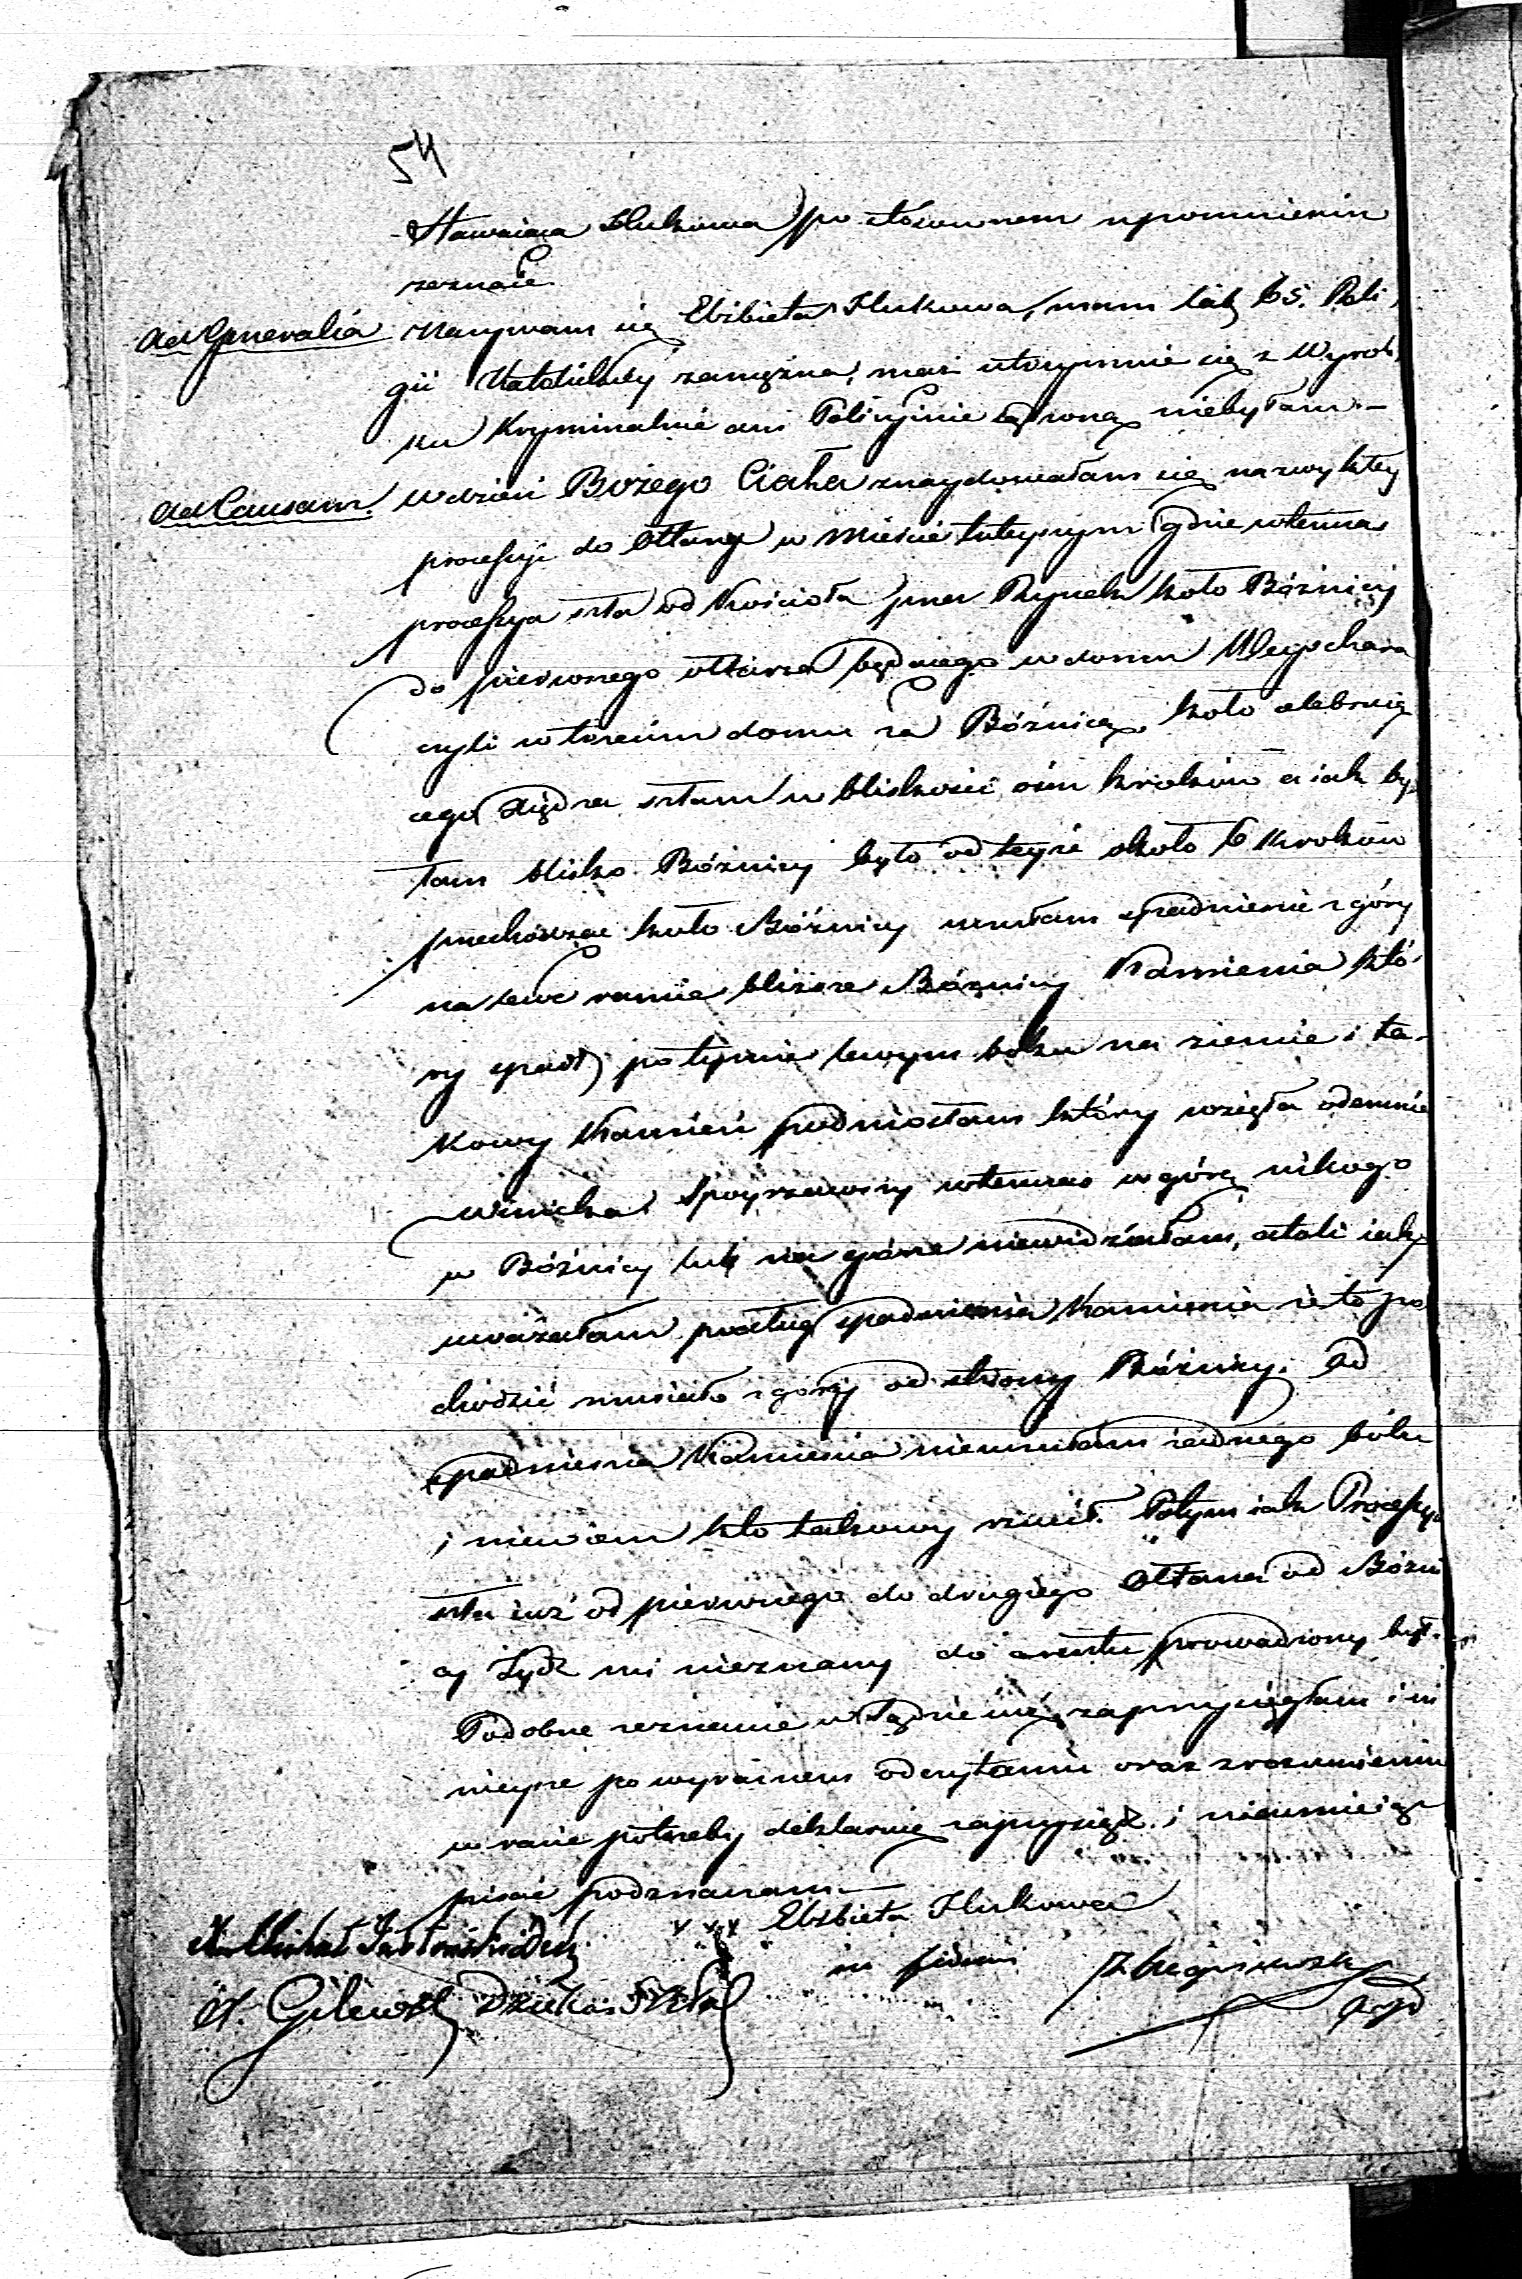 54
Stawaiąca Hukowa po stosownem upomnieniu
zeznaie
Ad Generalia Nazywam się Elżbieta Hukowa, mam lat 65. Reli
gii Katolickiey zamężna, mąż utrzymuie się z Wyrob
ku Kryminalnie ani Policyinie sądzoną niebyłam. –
Ad Causam. W dzień Bożego Ciała znaydowałam się na zwykłey
processyi do Ołtarzy w mieście tuteyszym gdzie wtenczas
processya szła od Kościoła przez Rynek koło Bóżnicy
do pierwszego ołtarza będącego w domu
czyli w trzecim domu za Bóżnicą, koło celebruią
cego Xiędza szłam w bliskości ośm kroków a iak by
łam blisko Bóżnicy było od teyże około 6 kroków
przechodząc koło Bóżnicy czułam spadnienie z góry
na lewe ramie bliższe Bóżnicy Kamienia któ
ry spadł potymie lewym boku na ziemie i ta
kowy Kamień podniosłam który wzięła odemnie
Winicka Spoyrzawszy wtenczas w górę nikogo
w Bóżnicy lub na górze niewidziałam, atoli iak
uważałam podług spadnienia Kamienia że to po
chodzić musiało z góry od strony Bóżnicy. Od
spadnienia Kamienia nieczułam żadnego bólu
i niewiem kto takowy rzucił. Potym iak Processya
szła iuż od pierwszego do drugiego Ołtarza od Bóżni
cy Żyd mi nieznany do aresztu prowadzony był.
Podobne zeznanie w Sądzie iuż zaprzysięgłam i ni
nieysze po wyraźnem odczytaniu oraz zrozumieniu
w razie potrzeby deklaruię zaprzysiądz i nieumieiąc
pisać podznaczam –
x x x Elżbieta Hukowa
in fidem